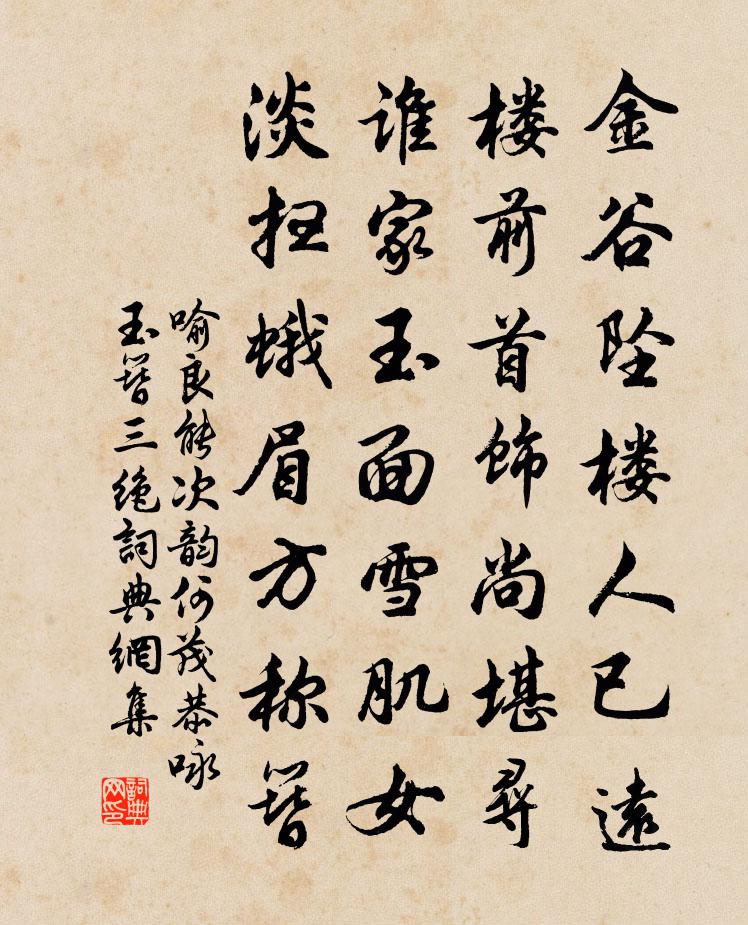 金谷坠楼人已远
楼前首饰尚堪寻
谁家玉面雪肌女
淡扫蛾眉方称簪
喻良能次韵何茂恭咏
玉簪三绝詞典網集
詞典网印